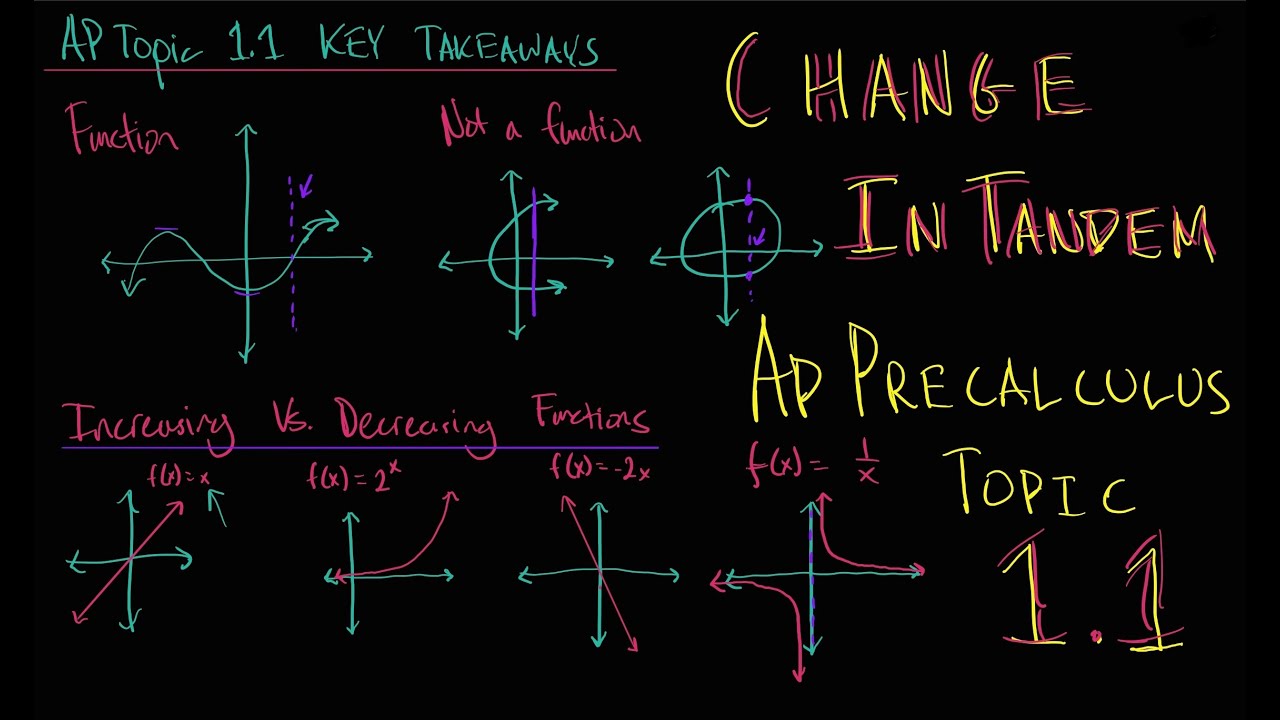 AP Topic 1.1 KEY TAKEAWAYS
Function
Not a function
Increasing Vs. Decreasing Functions
f(x)=x
f(x)=2^x
f(x)=-2x
f(x)= 1/x
CHANGE
IN TANDEM
AP PRECALCULUS
TOPIC
1.1